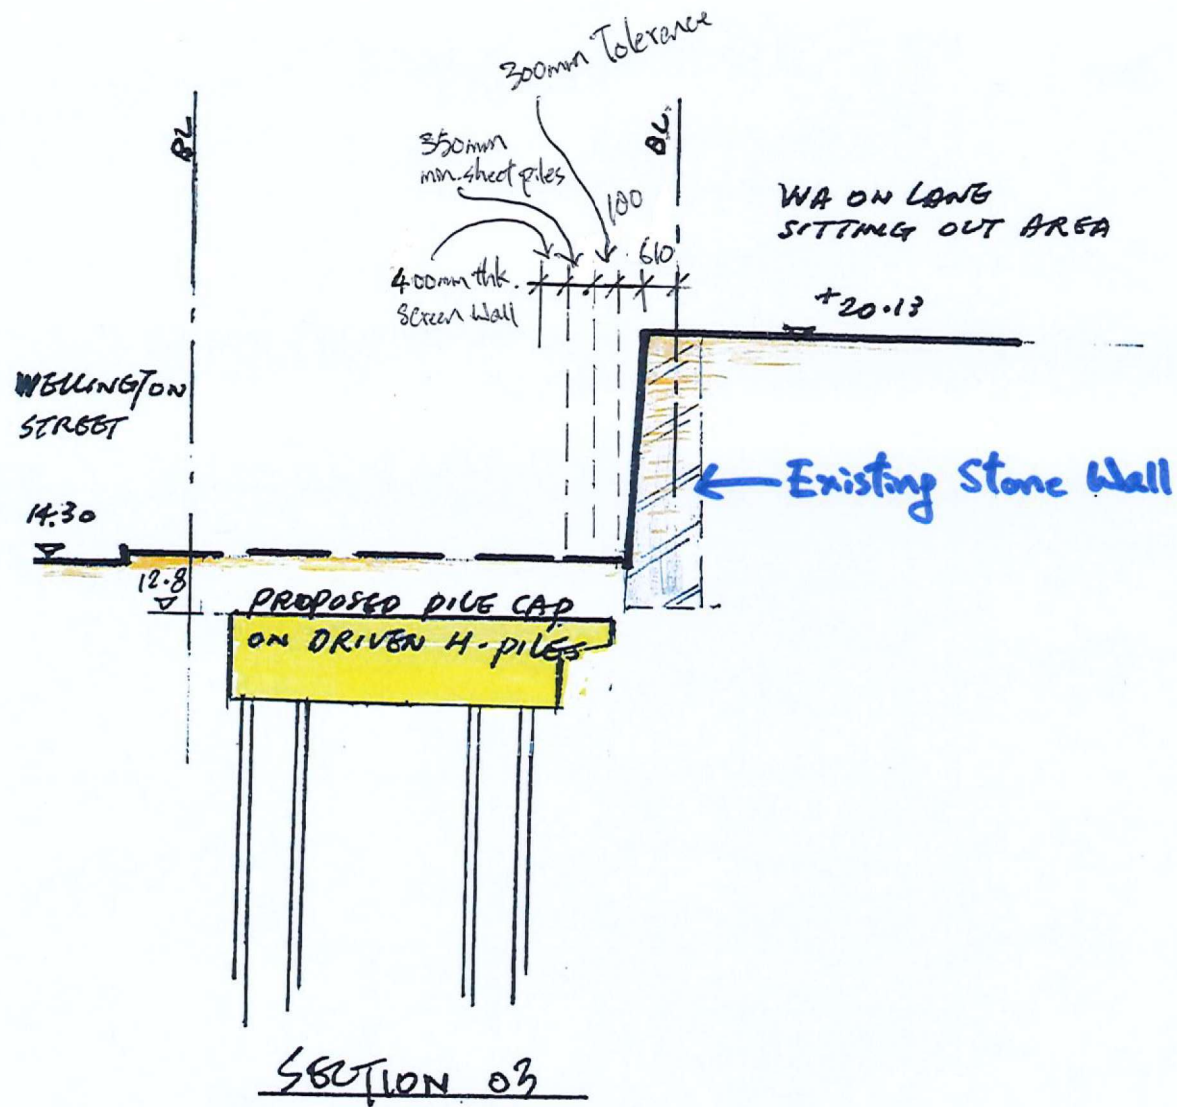 300mm Tolerance
BL
BL
350mm
min. sheet piles
100
610
400mm thk.
Screen Wall
WA ON LANE
SITTING OUT AREA
+20.13
WELLINGTON
STREET
Existing Stone Wall
14.30
12.8
PROPOSED PILE CAP
ON DRIVEN H-PILES
SECTION 03